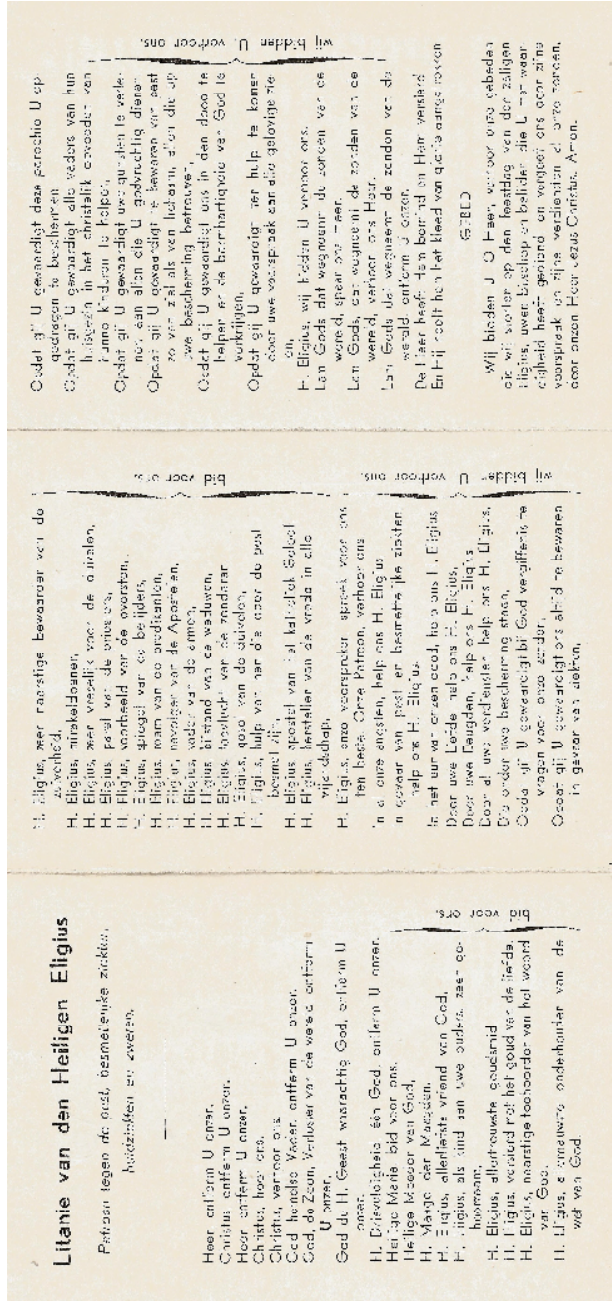 Litanie van den Heiligen Eligius
Patroon tegen de pest, besmettelijke ziekten,
huidziekten en zweren.
Heer ontferm U onzer.
Christus ontferm U onzer.
Heer ontferm U onzer.
Christus, hoor ons.
Christus, verhoor ons.
God, hemelse Vader, ontferm U onzer.
God, de Zoon, Verlosser van de wereld ontferm
U onzer.
God de H. Geest waarachtig God, ontferm U
onzer.
H. Drievuldigheid één God, ontferm U onzer.
Heilige Maria bid voor ons.
Heilige Moeder van God,
H. Maagd der Maagden,
H. Eligius, allerliefste vriend van God,
H. Eligius, als kind aan uwe ouders, zeer ge-
hoorzaam,
H. Eligius, allertrouwste goudsmid
H. Eligius, versierd met het goud van de liefde.
H. Eligius, naarstige toehoorder van het woord
van God.
H. Eligius, onderhouder van de
wet van God
bid voor ons.
H. Eligius, zeer naarstige bewaarder van de
zuiverheid,
H. Eligius, mirakeldoener,
H. Eligius, zeer vreselijk voor de duivelen,
H. Eligius parel van de priesters,
H. Eligius, voorbeeld van de oversten,
H. Eligius, spiegel van de belijders,
H. Eligius, roem van de predikanten,
H. Eligius, navolger van de Apostelen,
H. Eligius, vader van de armen,
H. Eligius bijstand van de weduwen,
H. Eligius, toevlucht van de zondaren
H. Eligius, gesel van de duivelen,
H. Eligius, hulp van hen die door de pest
besmet zijn,
H. Eligius apostel van het katholiek Geloof
H. Eligius, hersteller van de vrede in alle
vijandschap,
H. Eligius, onze voorspreker spreek voor ons
ten beste. Onze Patroon, verhoor ons
In al onze angsten, help ons H. Eligius
In gevaar van pest en besmettelijke ziekten
help ons H. Eligius.
In het uur van onzen dood, help ons H. Eligius
Door uwe Liefde help ons H. Eligius,
Door uwe Deugden, help ons H. Eligius
Door al uwe verdiensten help ons H. Eligius,
Die onder uwe bescherming staan,
Opdat gij U gewaardigt bij God vergiffenis te
vragen voor onze zonden,
Opdat gij U gewaardigt ons altijd te bewaren
in gevaar van ziekten,
bid voor ons.
wij bidden U verhoor ons.
Opdat gij U gewaardigt deze parochie U op-
gedragen te beschermen
Opdat gij U gewaardigt alle vaders van hun
huisgezin in het christelijk opvoeden van
hunne kinderen te helpen,
Opdat gij U gewaardigt uwe gunsten te verle-
nen aan allen die U godvruchtig dienen
Opdat gij U gewaardigt te bewaren van pest
zo van ziel als van lichaam, allen die op
uwe bescherming betrouwen,
Opdat gij U gewaardigt ons in den dood te
helpen en de barmhartigheid van God te
verkrijgen,
Opdat gij U gewaardigt ter hulp te komen
door uwe voorspraak aan alle gelovige zie-
len,
H. Eligius, wij bidden U verhoor ons.
Lam Gods dat wegneemt de zonden van de
wereld, spaar ons Heer.
Lam Gods, dat wegneemt de zonden van de
wereld, verhoor ons Heer.
Lam Gods dat wegneemt de zonden van de
wereld, ontferm U onzer.
De Heer heeft hem bemind en Hem versierd
En Hij heeft hem het kleed van glorie aangetrokken
GEBED
Wij bieden U O Heer, verhoor onze gebeden
die wij storten op den feestdag van den zaligen
Eligius, uwen bisschop en belijder die U met waar-
digheid heeft gediend en vergeef ons door zijne
voorspraak en zijne verdiensten al onze zonden,
door onzen Heer Jezus Christus. Amen.
wij bidden U, verhoor ons.